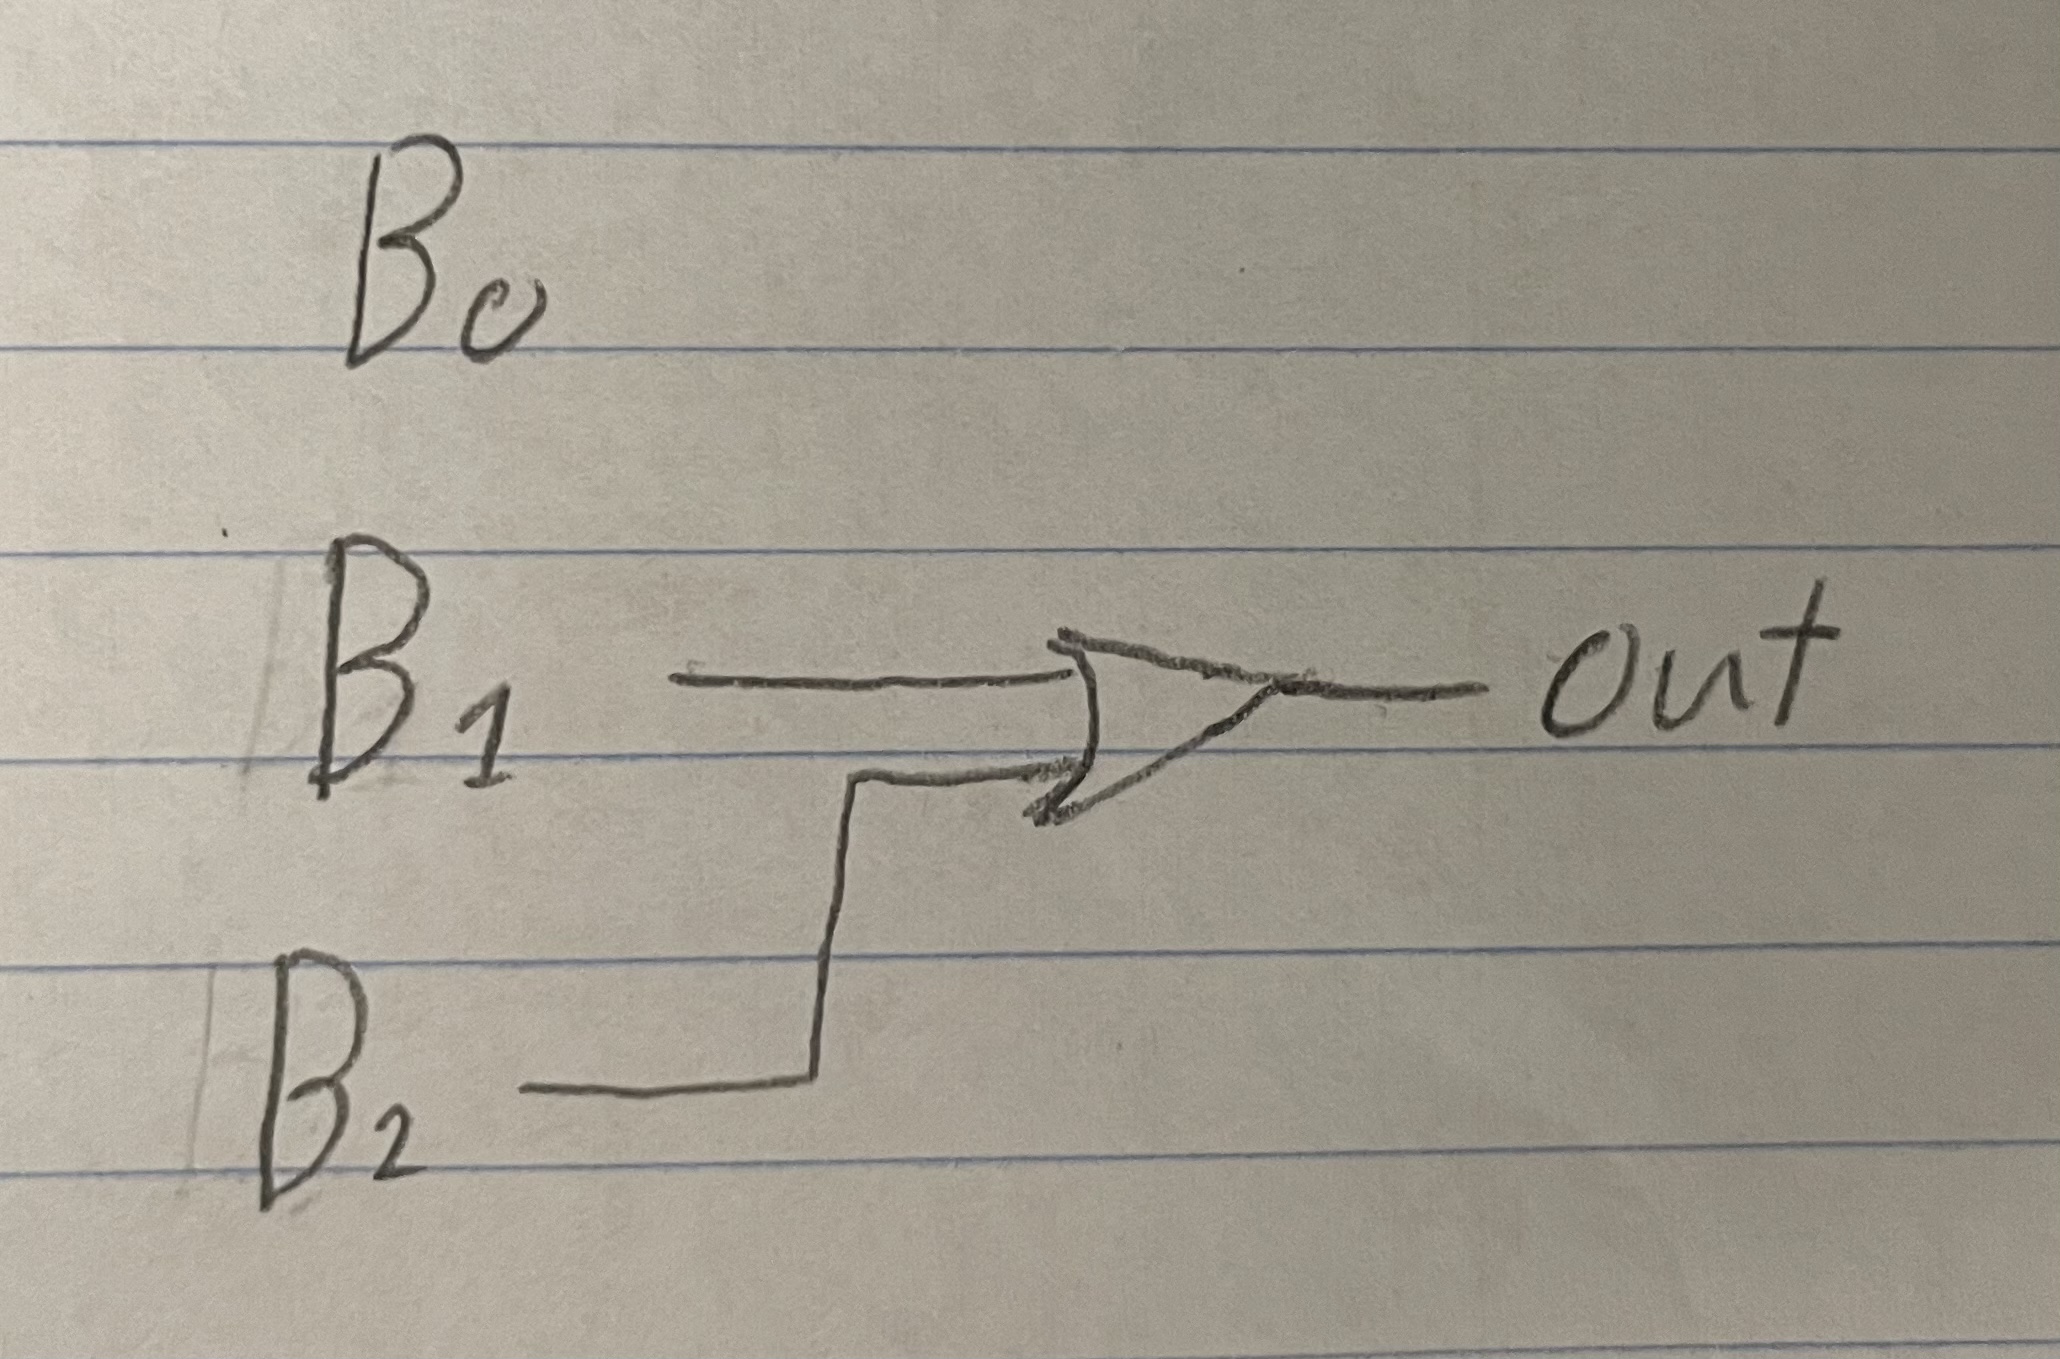 B0
B1 out
B2